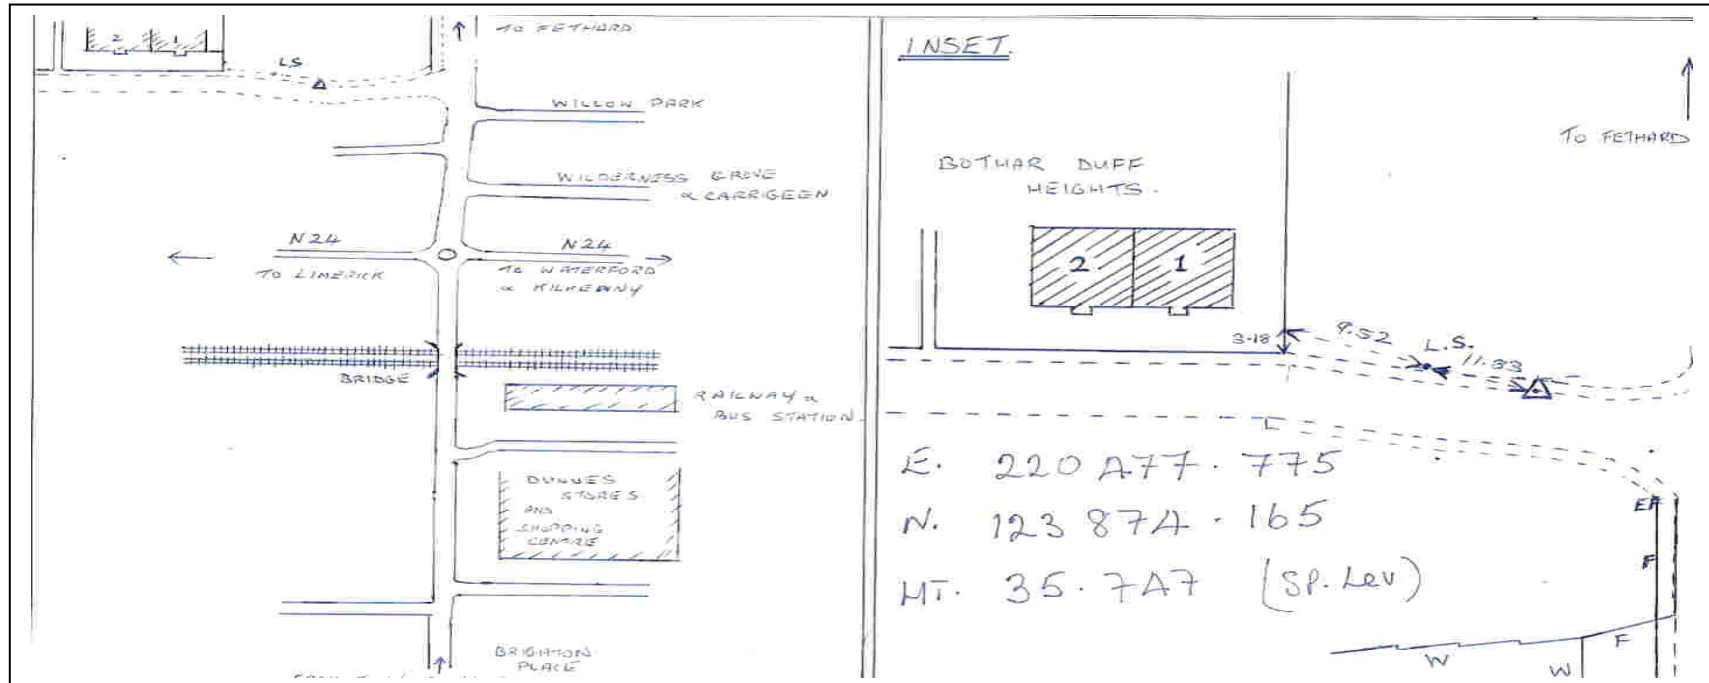 TO FETHARD
2 1
LS
WILLOW PARK
WILDERNESS GROVE
& CARRIGEEN
N24
N24
TO LIMERICK
TO WATERFORD
& KILKENNY
BRIDGE
RAILWAY &
BUS STATION
DUNNES
STORES
AND
SHOPPING
CENTRE
BRIGHTON
PLACE
INSET.
TO FETHARD
BOTHAR DUFF
HEIGHTS.
2 1
3.18
9.52
L.S.
11.33
E. 220 477.775
N. 123 874.165
HT. 35.747 (SP. Lev)
F
F
W
W